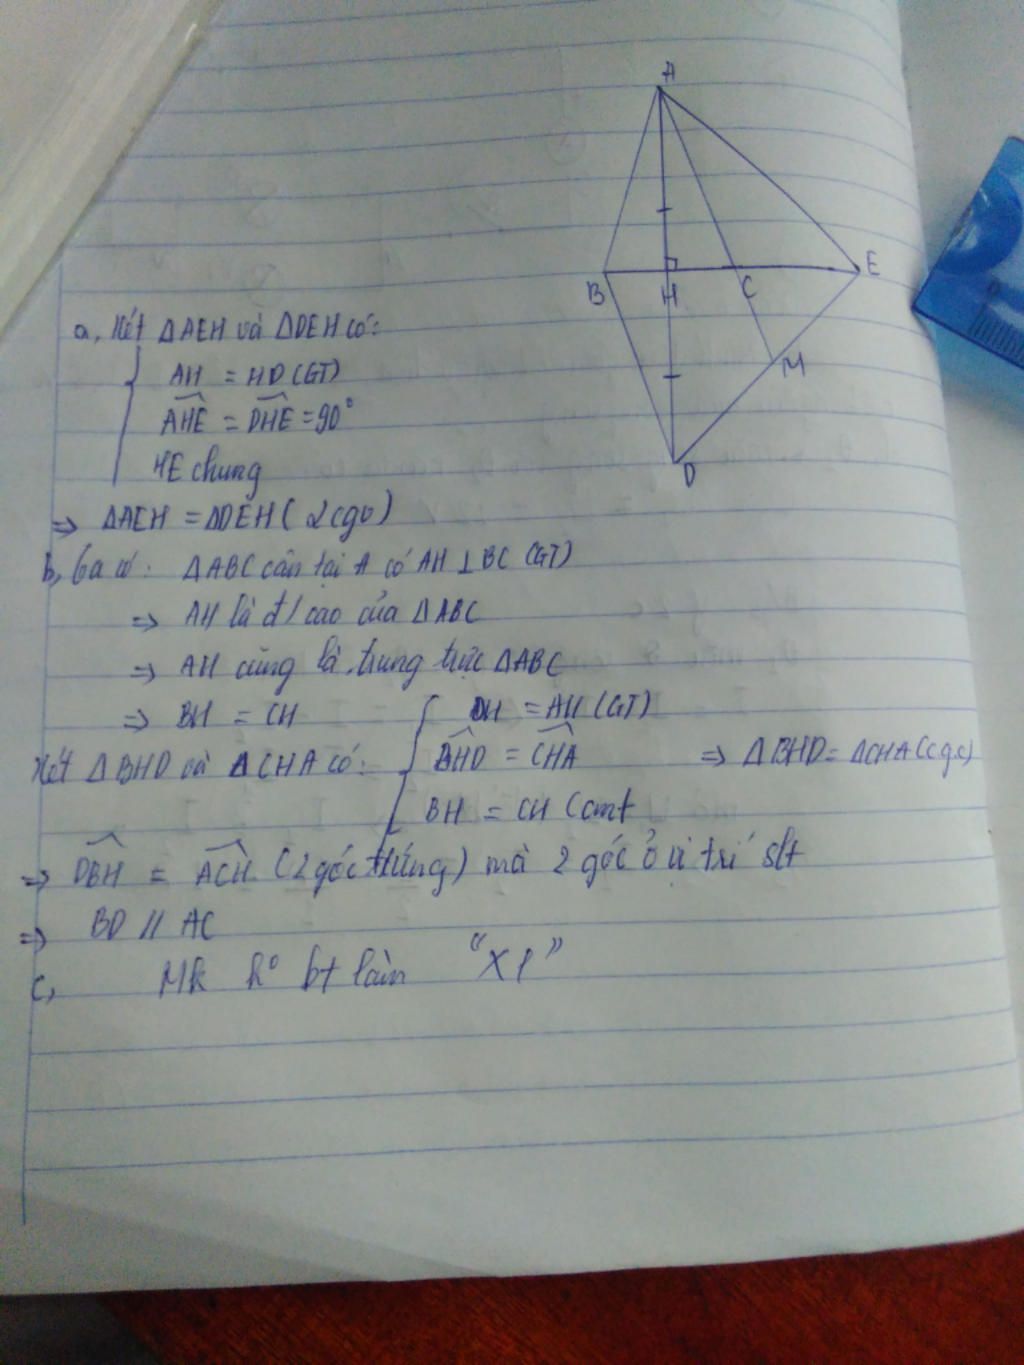 A
B
H
C
E
M
D
a, Xét ΔAEH và ΔDEH có:
AH = HD (GT)
AHE = DHE = 90°
HE chung
=> ΔAEH = ΔDEH ( 2cgv)
b, Ta có: ΔABC cân tại A có AH ⊥ BC (GT)
=> AH là đ/cao của ΔABC
=> AH cũng là trung trực ΔABC
=> BH = CH
DH = AH (GT)
Xét ΔBHD và ΔCHA có: BHD = CHA => ΔBHD = ΔCHA (c.g.c)
BH = CH (cmt
=> DBH = ACH (2 góc tứng) mà 2 góc ở vị trí slt
=> BD // AC
c, Mk k° bt làm "XL"